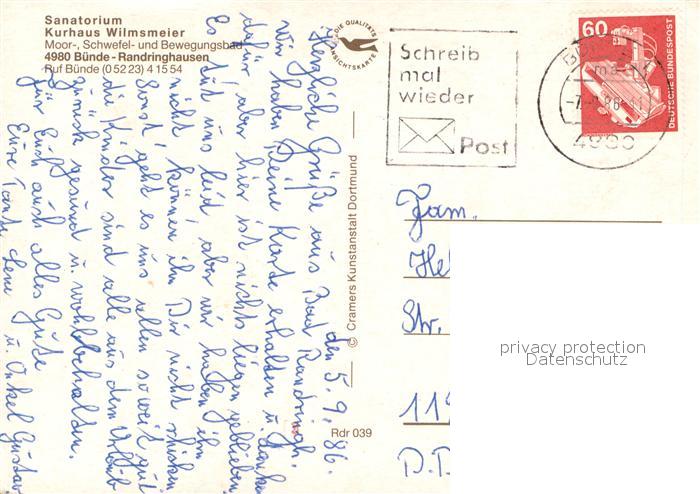 Sanatorium
Kurhaus Wilmsmeier
Moor-, Schwefel- und Bewegungsbad
4980 Bünde - Randringhausen
Ruf Bünde (05223) 41554
DIE QUALITÄTS
ANSICHTSKARTE
Schreib
mal
wieder
Post
60
DEUTSCHE BUNDESPOST
4980
den 5.9.86.
Herzliche Grüße aus Bad Randringh.
wir haben Deine Karte erhalten u. danken
dafür, aber hier ist nichts liegen geblieben.
Es tut uns leid aber wir haben ihn
nicht können ihn Dir nicht schicken
Sonst geht es uns allen soweit gut
die Kinder sind alle aus dem Urlaub
zurück gesund u. wohlbehalten.
Für Euch auch alles Gute
Eure Tante Lene u. Onkel Gustav
© Cramers Kunstanstalt Dortmund
Rdr 039
Fam.
He
Str.
11
D.D
privacy protection
Datenschutz